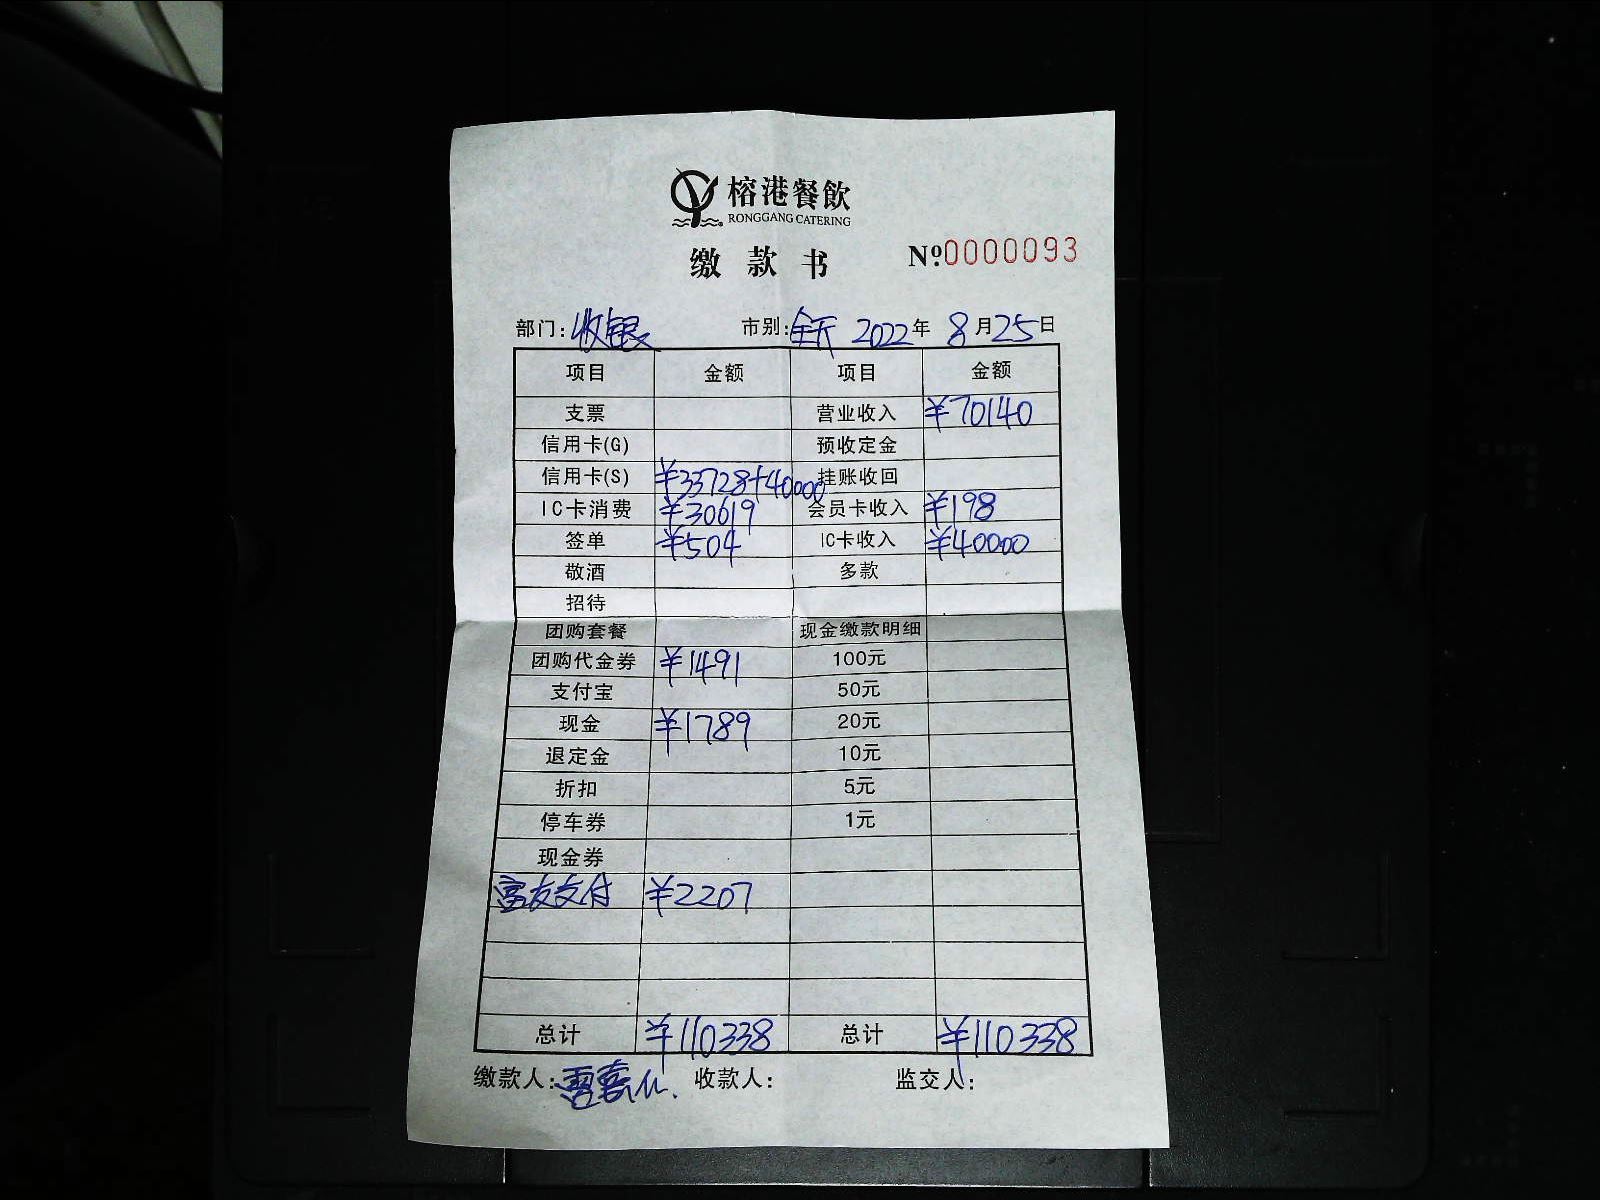 榕港餐飲
RONGGANG CATERING
缴款书 Nº0000093
部门:收银 市别:全天 2022年 8月25日
项目 金额 项目 金额
支票 营业收入 ¥70140
信用卡(G) 预收定金
信用卡(S) ¥33728+40000 挂账收回
IC卡消费 ¥30619 会员卡收入 ¥198
签单 ¥504 IC卡收入 ¥40000
敬酒 多款
招待
团购套餐 现金缴款明细
团购代金券 ¥1491 100元
支付宝 50元
现金 ¥1789 20元
退定金 10元
折扣 5元
停车券 1元
现金券
富友支付 ¥2207
总计 ¥110338 总计 ¥110338
缴款人: 收款人: 监交人: